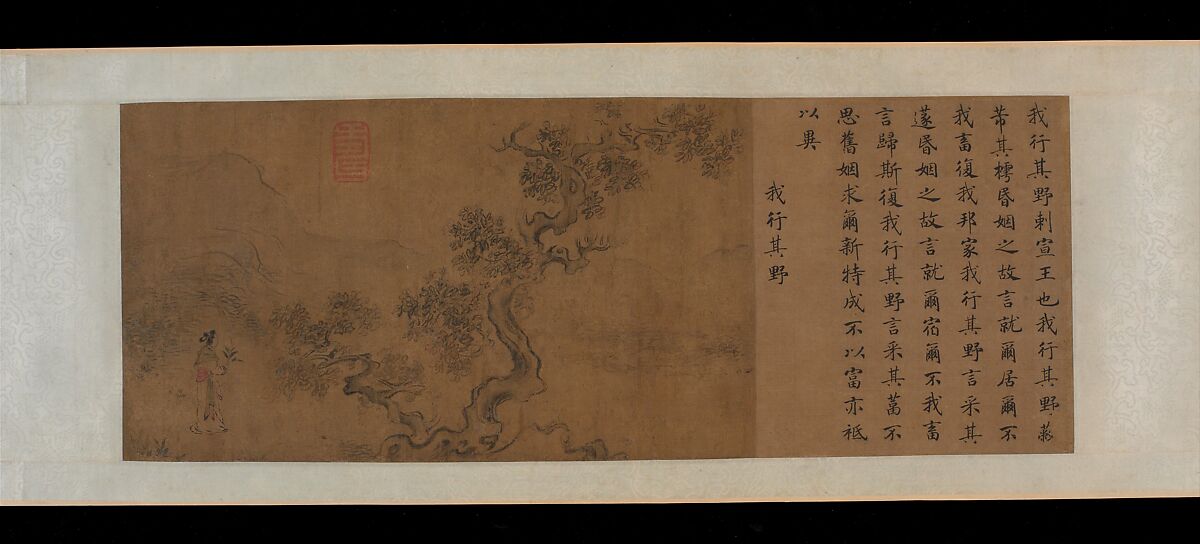 我行其野刺宣王也我行其野蔽
芾其樗昬姻之故言就爾居爾不
我畜復我邦家我行其野言采其
蓫昬姻之故言就爾宿爾不我畜
言歸斯復我行其野言采其葍不
思舊姻求爾新特成不以富亦祗
以異
我行其野